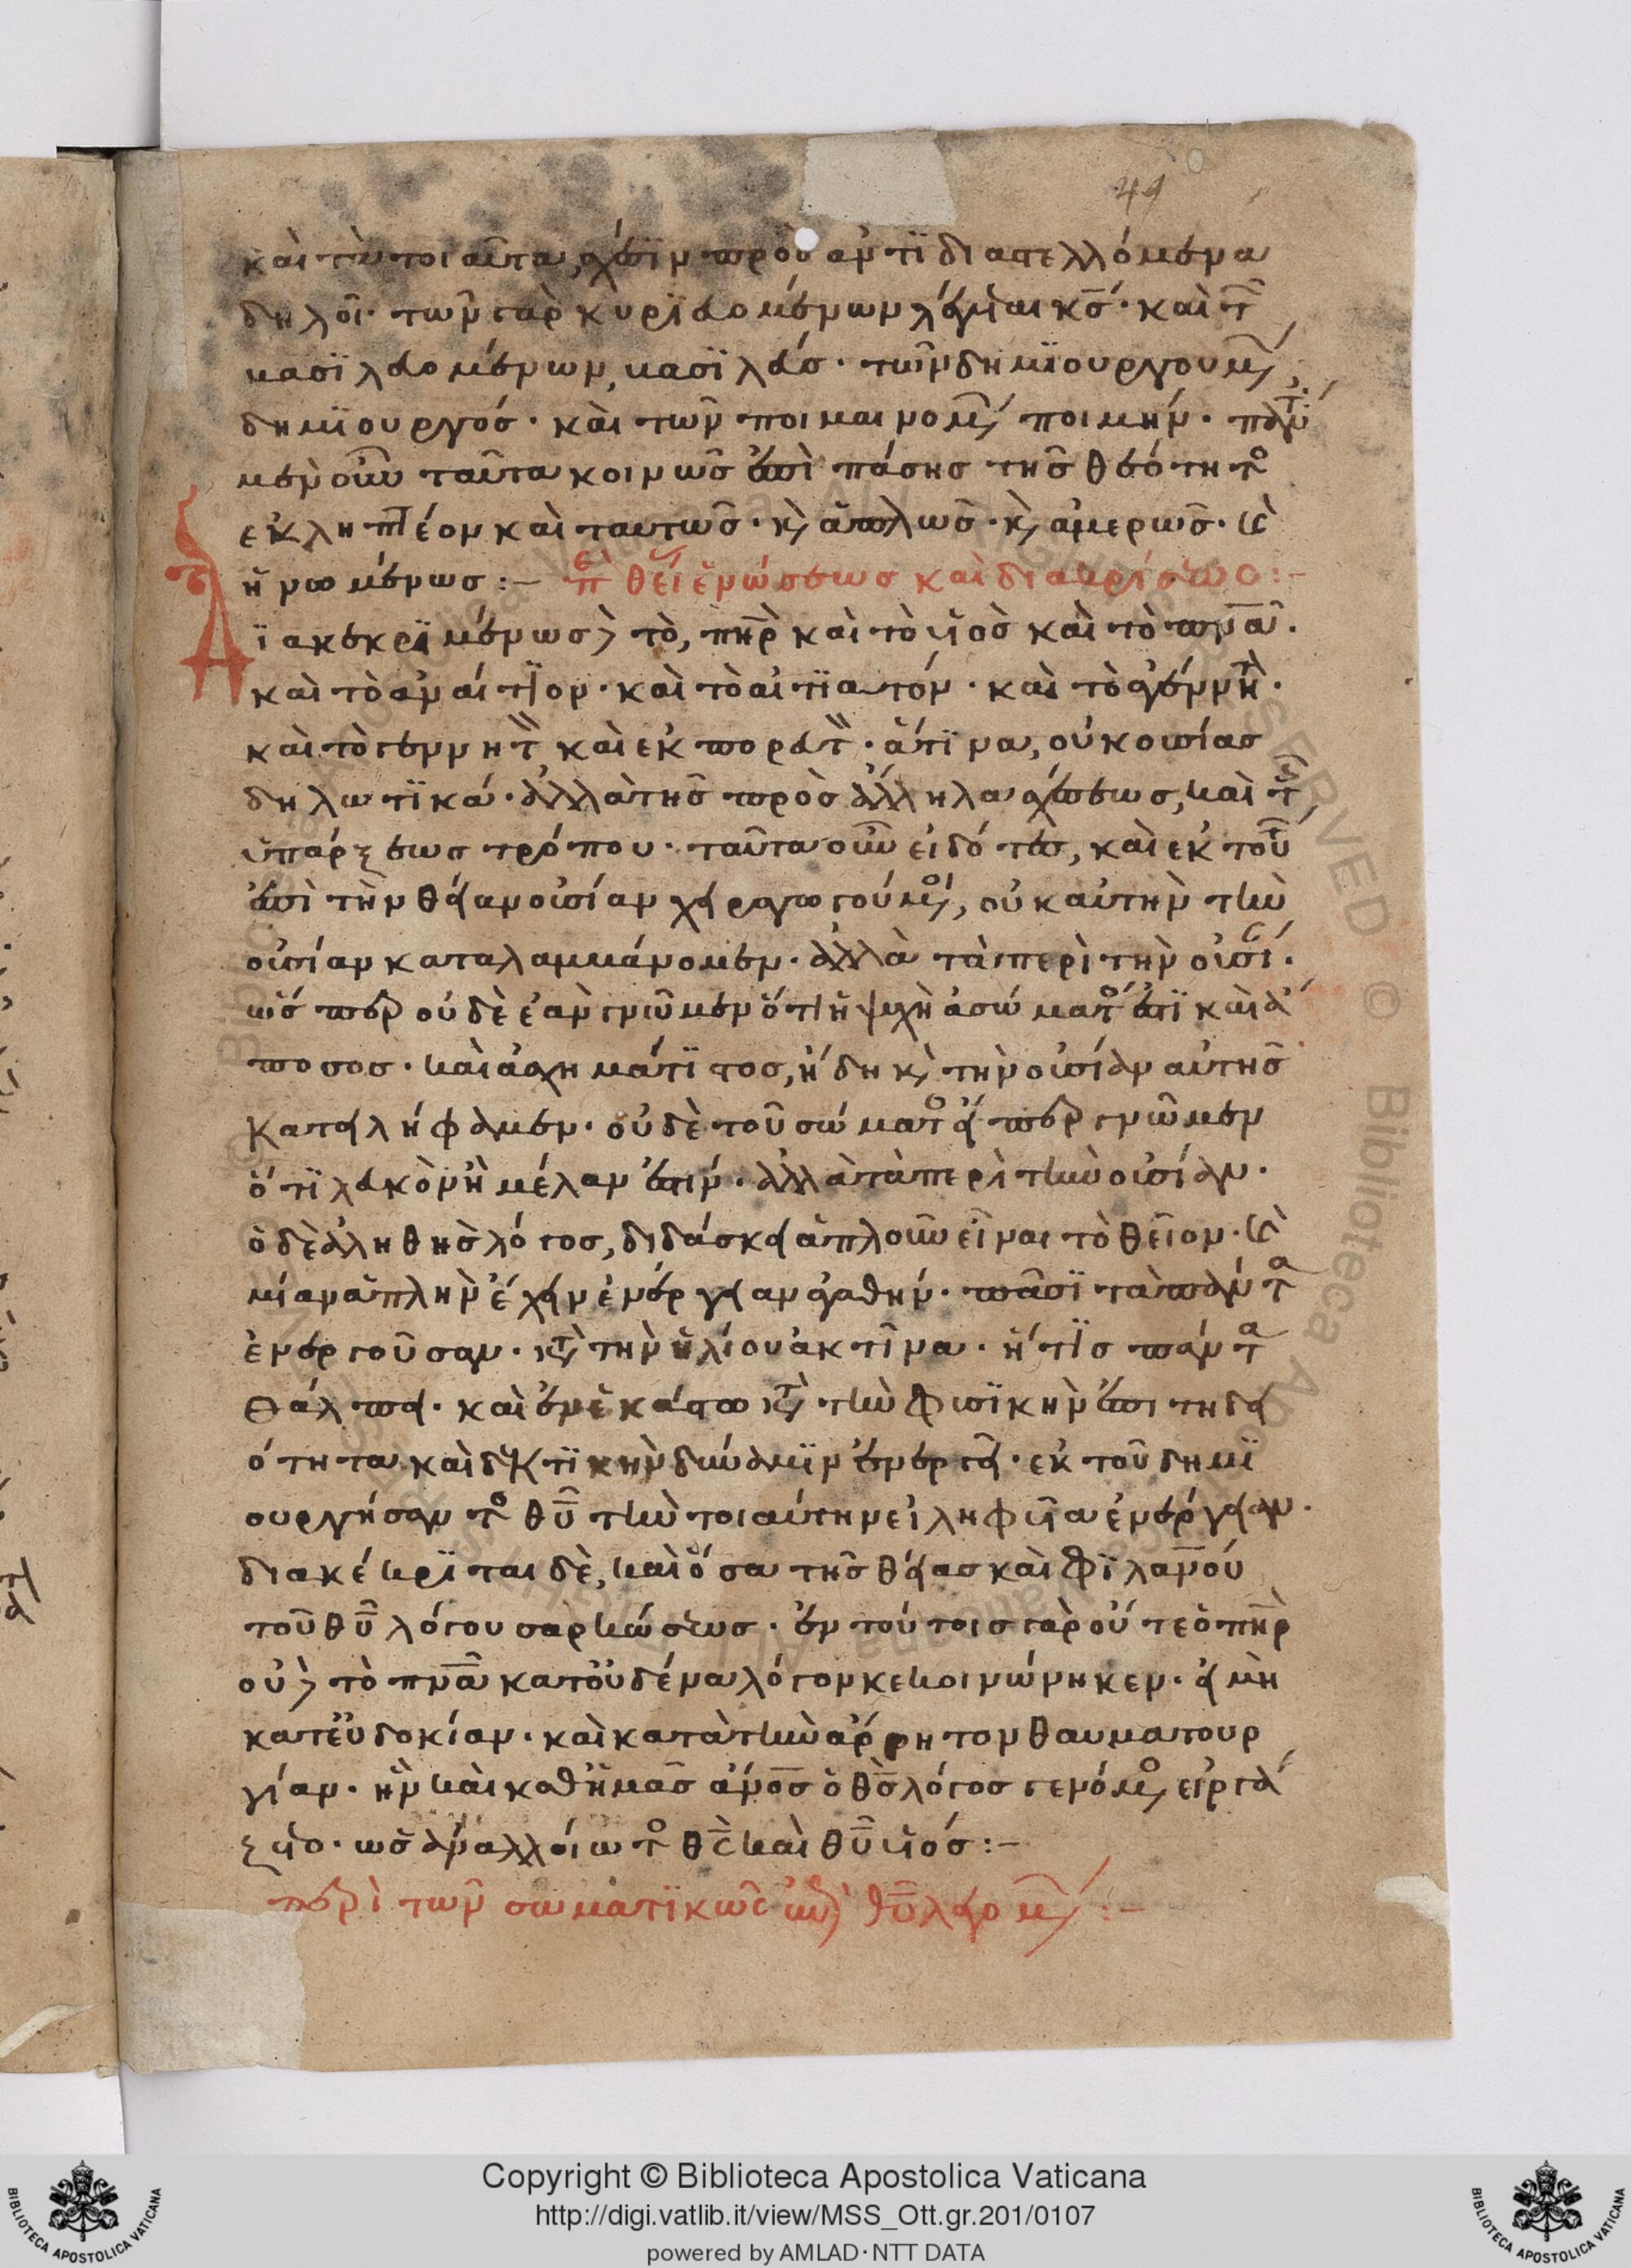 49
καὶ τὰ τοιαῦτα, σχέσιν πρὸς ἀντιδιαστελλόμενα
δηλοῖ· τῶν γὰρ κυριευομένων λέγεται κς· καὶ τ
βασιλευομένων, βασιλεύς· τῶν δημιουργουμ
δημιουργός· καὶ τῶν ποιμαινομ ποιμήν· πάντ
μὲν οὖν ταῦτα κοινῶς ἐπὶ πάσης τῆς θεότητο
ἐκληπτέον καὶ ταυτῶς· κ ἁπλῶς· κ ἀμερῶς· κ
ἡνωμένως :– πε θεί ἑνώσεως καὶ διακρίσεως :–
Διακεκριμένως δὲ τὸ, πηρ καὶ τὸ υἱὸς καὶ τὸ πνα·
καὶ τὸ ἀναίτιον· καὶ τὸ αἰτιατόν· καὶ τὸ ἀγέννητ·
καὶ τὸ γεννητ, καὶ ἐκπορευτ· ἅτινα, οὐκ οὐσίας
δηλωτικά· ἀλλὰ τῆς πρὸς ἄλληλα σχέσεως, καὶ τ
ὑπάρξεως τρόπου· ταῦτα οὖν εἰδότες, καὶ ἐκ τούτ
ἐπὶ τὴν θείαν οὐσίαν χειραγωγούμο, οὐκ αὐτὴν τὴν
οὐσίαν καταλαμβάνομεν· ἀλλὰ τὰ περὶ τὴν οὐσί·
ὥσπερ οὐδὲ ἐὰν γνῶμεν ὅτι ἡ ψυχὴ ἀσώματο ἐστι καὶ ἄ
ποσος· καὶ ἀσχημάτιστος, ἤδη κ τὴν οὐσίαν αὐτῆς
κατειλήφαμεν· οὐδὲ τοῦ σώματο εἴπερ γνῶμεν
ὅτι λευκὸν ἢ μέλαν ἐστίν· ἀλλὰ τὰ περὶ τὴν οὐσίαν·
ὁ δὲ ἀληθὴς λόγος, διδάσκει ἁπλοῦν εἶναι τὸ θεῖον· κ
μίαν ἁπλὴν ἔχειν ἐνέργειαν ἀγαθήν· πᾶσι τὰ πάντα
ἐνεργοῦσαν· κτ τὴν ἡλίου ἀκτῖνα· ἥτις πάντα
θάλπει· καὶ ἐν ἑκάστω κτ τὴν φυσικὴν ἐπιτηδει
ότητα καὶ δεκτικὴν δύναμιν ἐνεργεῖ· ἐκ τοῦ δημι
ουργήσαντο θυ τὴν τοιαύτην εἰληφυῖα ἐνέργειαν·
διακέκριται δὲ, καὶ ὅσα τῆς θείας καὶ φιλανου
τοῦ θυ λόγου σαρκώσεως· ἐν τούτοις γὰρ οὔτε ὁ πηρ
οὐδὲ τὸ πνα κατ οὐδένα λόγον κεκοινώνηκεν· εἰ μὴ
κατ εὐδοκίαν· καὶ κατὰ τὴν ἄρρητον θαυματουρ
γίαν· ἣν καὶ καθ ἡμᾶς ἄνος ὁ θς λόγος γενόμο, εἰργά
ζετο· ὡς ἀναλλοίωτο θς καὶ θυ υἱός :–
περὶ τῶν σωματικῶς ἐπὶ θυ λεγομ :–
Copyright © Biblioteca Apostolica Vaticana
http://digi.vatlib.it/view/MSS_Ott.gr.201/0107
powered by AMLAD·NTT DATA
BIBLIOTECA APOSTOLICA VATICANA
BIBLIOTECA APOSTOLICA VATICANA